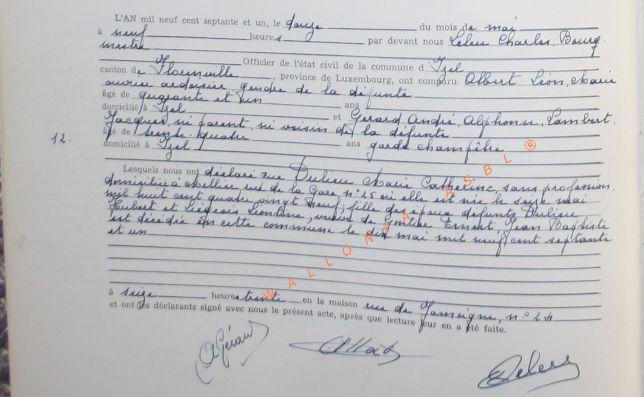 L'AN mil neuf cent septante et un, le douze du mois de mai
à neuf heures par devant nous Leleu Charles, Bourg-
mestre Officier de l'état civil de la commune d'Izel
canton de Florenville, province de Luxembourg, ont comparu Albert Léon, Marie
ouvrier ardoisier, gendre de la défunte
âgé de quarante et un ans
domicilié à Izel et Gérard André, Alphonse, Lambert,
Jacques, ni parent, ni voisin de la défunte
âgé de trente-quatre ans garde champêtre
domicilié à Izel
12.
Lesquels nous ont déclaré que Dulieu Marie Catherine, sans profession,
domiciliée à Mellier, rue de la Gare n° 25 où elle est née le seize mai
mil huit cent quatre vingt neuf; fille des époux défunts Dulieu
Hubert et Liégeois Léontine, veuve de Ernest, Jean Baptiste
est décédée en cette commune le dix mai mil neuf cent septante
et un
à seize heures trente en la maison rue de Jamoigne, n° 24
et ont les déclarants signé avec nous le présent acte, après que lecture leur en a été faite.
WALLONIA A.S.B.L ®
AGérard